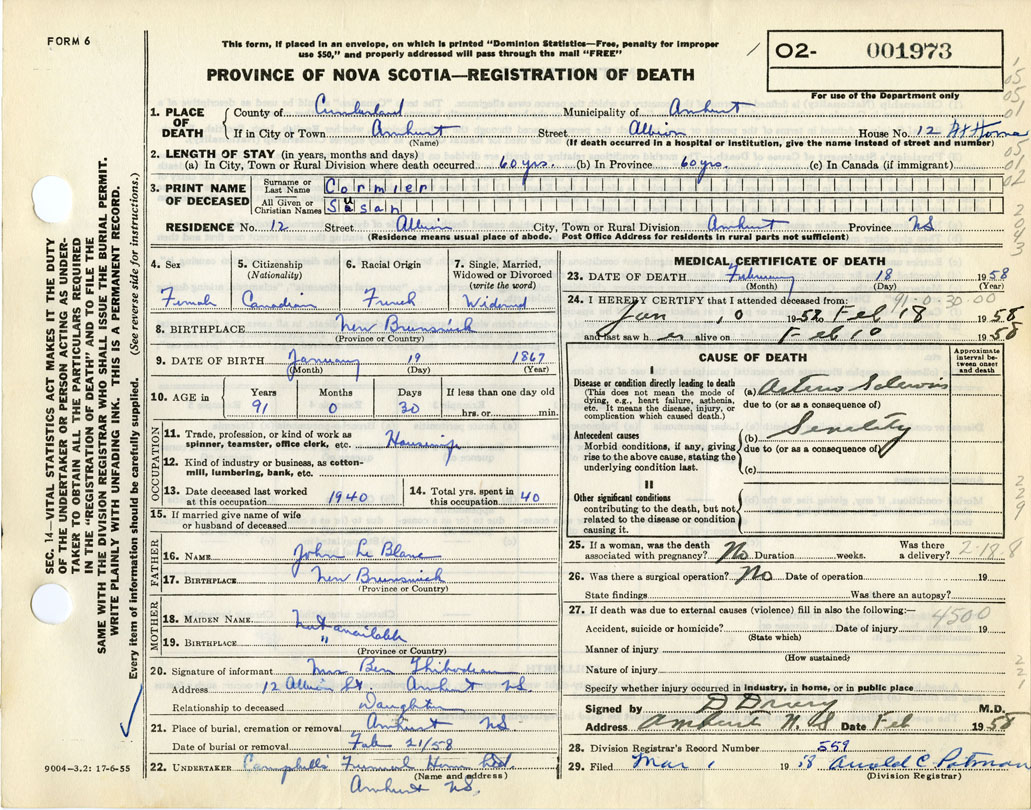 FORM 6
This form, if placed in an envelope, on which is printed "Dominion Statistics—Free, penalty for improper
use $50," and properly addressed will pass through the mail "FREE"
PROVINCE OF NOVA SCOTIA—REGISTRATION OF DEATH
O2- 001973
For use of the Department only
SEC. 14—VITAL STATISTICS ACT MAKES IT THE DUTY
OF THE UNDERTAKER OR PERSON ACTING AS UNDER-
TAKER TO OBTAIN ALL THE PARTICULARS REQUIRED
IN THE "REGISTRATION OF DEATH" AND TO FILE THE
SAME WITH THE DIVISION REGISTRAR WHO SHALL ISSUE THE BURIAL PERMIT.
WRITE PLAINLY WITH UNFADING INK. THIS IS A PERMANENT RECORD.
Every item of information should be carefully supplied. (See reverse side for instructions.)
1. PLACE OF DEATH County of Cumberland Municipality of Amherst
If in City or Town Amherst Street Albion House No. 12 At Home
(Name) (If death occurred in a hospital or institution, give the name instead of street and number)
2. LENGTH OF STAY (in years, months and days)
(a) In City, Town or Rural Division where death occurred 60 yrs. (b) In Province 60 yrs. (c) In Canada (if immigrant)
3. PRINT NAME OF DECEASED Surname or Last Name Cormier
All Given or Christian Names Susan
RESIDENCE No. 12 Street Albion City, Town or Rural Division Amherst Province NS
(Residence means usual place of abode. Post Office Address for residents in rural parts not sufficient)
4. Sex 5. Citizenship (Nationality) 6. Racial Origin 7. Single, Married, Widowed or Divorced (write the word)
Female Canadian French Widowed
8. BIRTHPLACE New Brunswick
(Province or Country)
9. DATE OF BIRTH January 19 1867
(Month) (Day) (Year)
10. AGE in Years Months Days If less than one day
91 0 30 hrs. or min.
OCCUPATION
11. Trade, profession, or kind of work as
spinner, teamster, office clerk, etc. Housewife
12. Kind of industry or business, as cotton-
mill, lumbering, bank, etc.
13. Date deceased last worked at this occupation 1940 14. Total yrs. spent in this occupation 40
15. If married give name of wife
or husband of deceased
FATHER
16. NAME John Le Blanc
17. BIRTHPLACE New Brunswick
(Province or Country)
MOTHER
18. MAIDEN NAME Not available
19. BIRTHPLACE "
(Province or Country)
20. Signature of informant Mrs Ben Thibodeau
Address 12 Albion St. Amherst NS.
Relationship to deceased Daughter
21. Place of burial, cremation or removal Amherst NS
Date of burial or removal Feb 21/58
22. UNDERTAKER Campbells Funeral Home Ltd
(Name and address)
Amherst NS.
9004—3.2: 17-6-55
MEDICAL CERTIFICATE OF DEATH
23. DATE OF DEATH February 18 1958
(Month) (Day) (Year)
91-0-30-00
24. I HEREBY CERTIFY that I attended deceased from:
Jan 10 1958 to Feb 18 1958
and last saw her alive on Feb 10 1958
CAUSE OF DEATH
Approximate interval between onset and death
I
Disease or condition directly leading to death
(This does not mean the mode of
dying, e.g., heart failure, asthenia,
etc. It means the disease, injury, or
complication which caused death.)
(a) Arterio Sclerosis
due to (or as a consequence of)
Antecedent causes
Morbid conditions, if any, giving
rise to the above cause, stating the
underlying condition last.
(b) Senility
due to (or as a consequence of)
(c)
II
Other significant conditions
contributing to the death, but not
related to the disease or condition
causing it.
25. If a woman, was the death
associated with pregnancy? No Duration weeks. Was there a delivery?
26. Was there a surgical operation? No Date of operation 19
State findings Was there an autopsy?
27. If death was due to external causes (violence) fill in also the following:—
4500
Accident, suicide or homicide? Date of injury 19
(State which)
Manner of injury
(How sustained)
Nature of injury
Specify whether injury occurred in industry, in home, or in public place
Signed by D Drury M.D.
Address Amherst N.S Date Feb 1958
28. Division Registrar's Record Number 559
29. Filed Mar 1 1958 Arnold C. Patman
(Division Registrar)